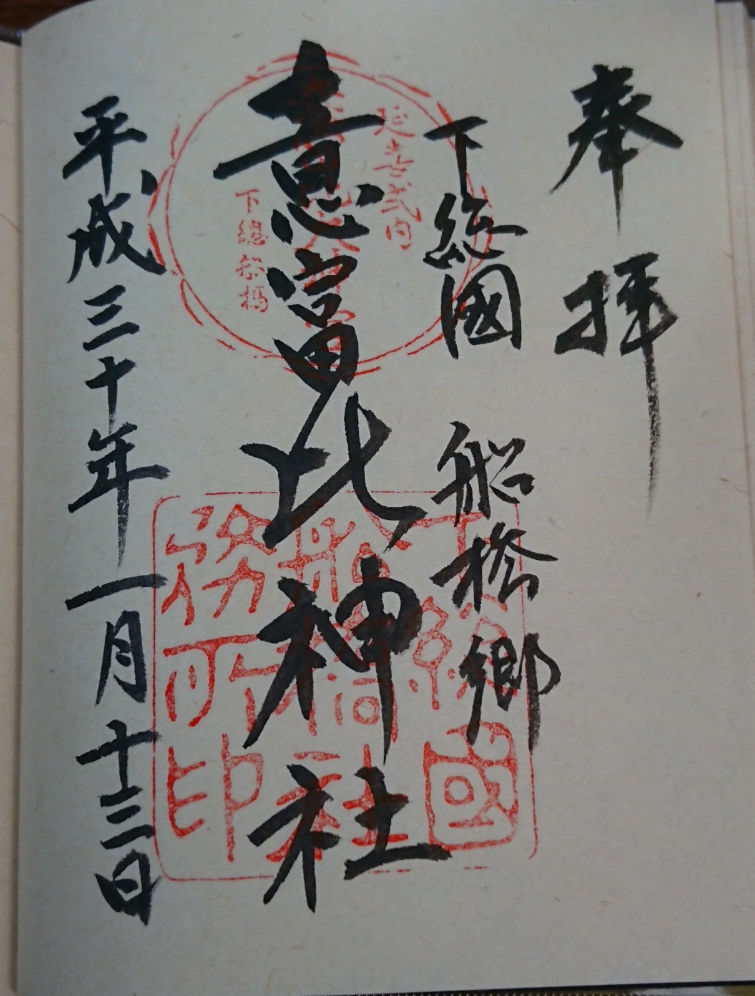 奉拝
下総國 船橋郷
意富比神社
平成三十年一月十三日
延喜式内
下總船橋
下総國
船橋社
務所印